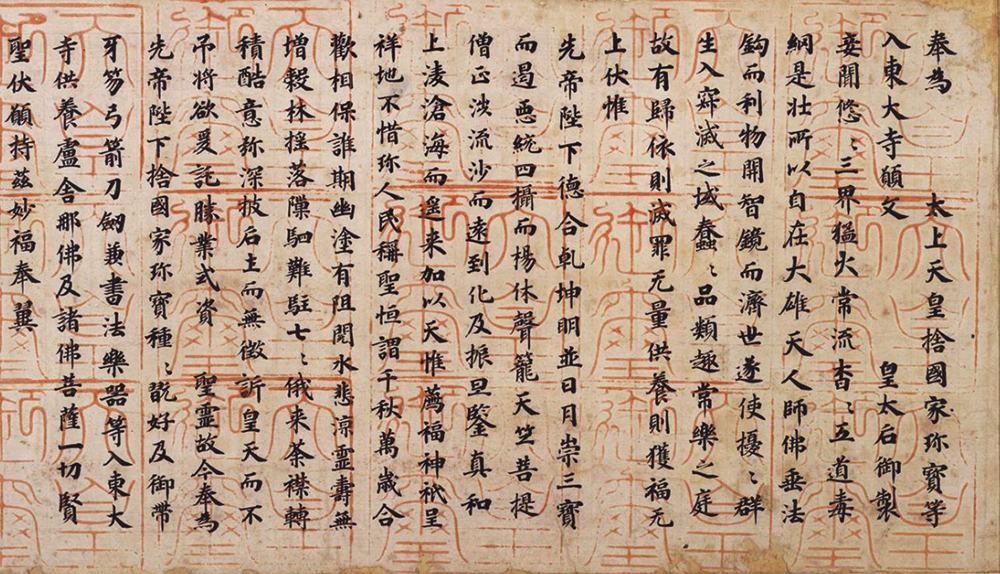 奉為　太上天皇捨國家珎寶等
入東大寺願文　皇太后御製
妾聞悠〻三界猛火常流杳〻五道毒
網是壯所以自在大雄天人師佛垂法
鈎而利物開智鏡而濟世遂使擾〻群
生入寂滅之域蠢〻品類趣常樂之庭
故有歸依則滅罪无量供養則獲福无
上伏惟
先帝陛下德合乹坤明並日月崇三寶
而遏惡統四攝而揚休聲籠天竺菩提
僧正涉流沙而遠到化及振旦鑒真和
上凌滄海而遥来加以天惟薦福神祇呈
祥地不惜珎人民稱聖恒謂千秋萬歲合
歡相保誰期幽塗有阻閱水悲凉靈壽無
增穀林揺落隟駟難駐七〻俄来荼襟轉
積酷意弥深披后土而無徵訴皇天而不
吊将欲爰託勝業式資　聖靈故今奉為
先帝陛下捨國家珎寶種〻翫好及御帶
牙笏弓箭刀劔兼書法樂器等入東大
寺供養盧舍那佛及諸佛菩薩一切賢
聖伏願持茲妙福奉翼